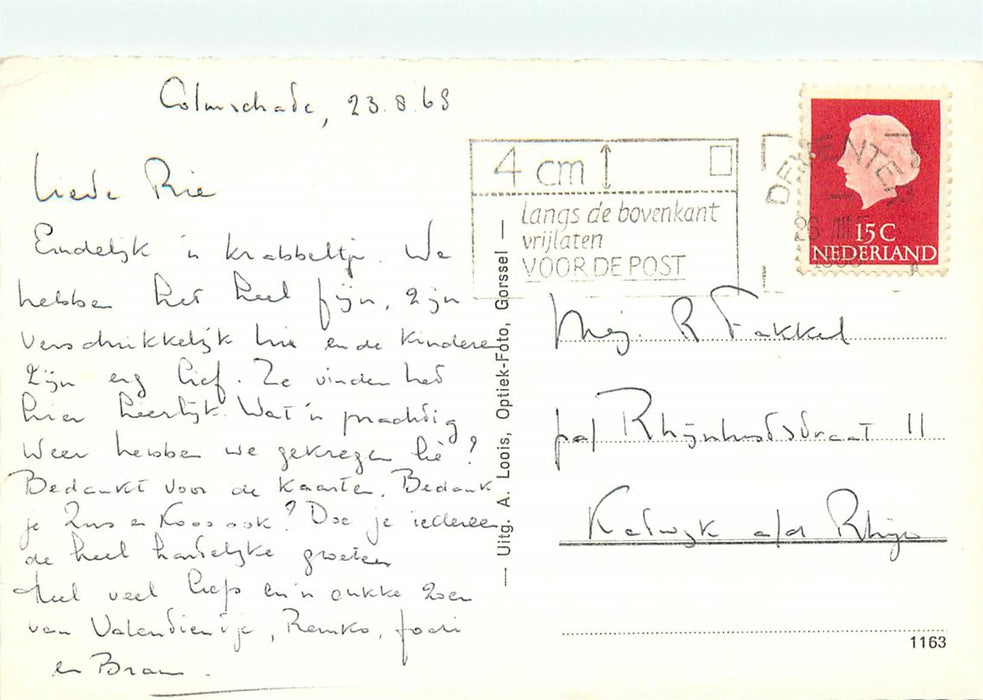 Colmschade, 23.8.68
Lieve Rie
Eindelijk 'n krabbeltje. We
hebben het heel fijn, zijn
verschrikkelijk hier en de kinderen
zijn erg lief. Ze vinden het
hier heerlijk. Wat 'n prachtig
weer hebben we gekregen hè?
Bedankt voor de kaarten. Bedank
je Zus en Koos ook? Doe je iedereen
de heel hartelijke groeten
Heel veel liefs en 'n dikke zoen
van Valentientje, Remko,
en Bram.
4 cm
langs de bovenkant
vrijlaten
VOOR DE POST
DEVENTER
15 C
NEDERLAND
— Uitg. A. Loois, Optiek-Foto, Gorssel —
Mej. R Fakkel
p/a Rhijnhofstraat 11
Katwijk a/d Rhijn
1163